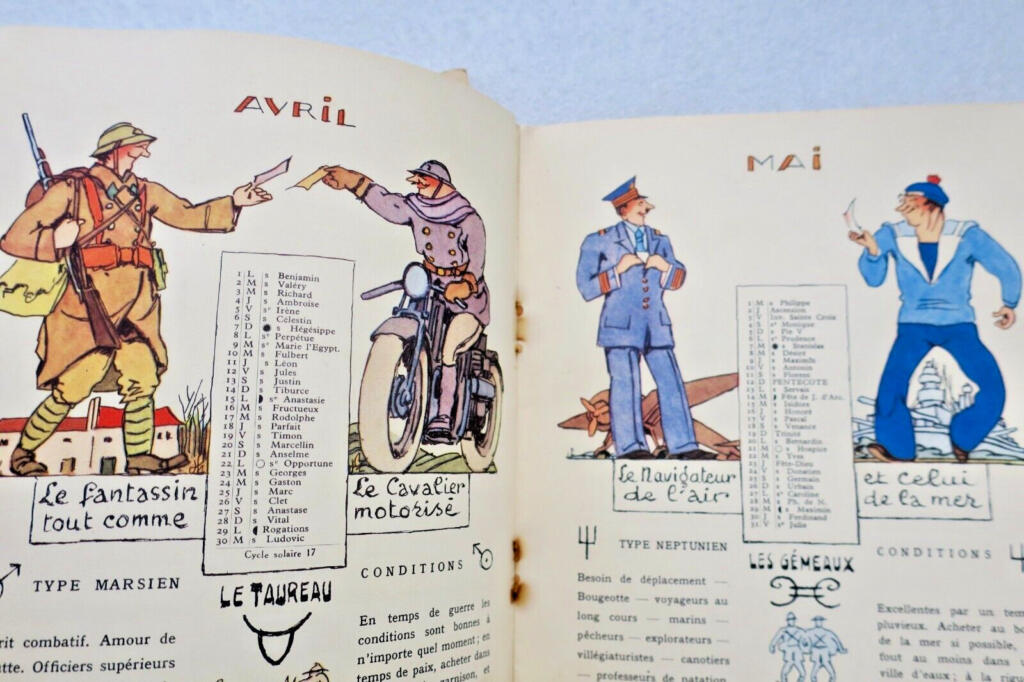 AVRIL
1 L s Benjamin
2 M s Valéry
3 M s Richard
4 J s Ambroise
5 V sᵉ Irène
6 S s Célestin
7 D s Hégésippe
8 L sᵉ Perpétue
9 M sᵉ Marie l'Egypt.
10 M s Fulbert
11 J s Léon
12 V s Jules
13 S s Justin
14 D s Tiburce
15 L sᵉ Anastasie
16 M s Fructueux
17 M s Rodolphe
18 J s Parfait
19 V s Timon
20 S s Marcellin
21 D s Anselme
22 L sᵉ Opportune
23 M s Georges
24 M s Gaston
25 J s Marc
26 V s Clet
27 S s Anastase
28 D s Vital
29 L Rogations
30 M s Ludovic
Cycle solaire 17
Le fantassin
tout comme
Le Cavalier
motorisé
TYPE MARSIEN
rit combatif. Amour de
utte. Officiers supérieurs
LE TAUREAU
CONDITIONS
En temps de guerre les
conditions sont bonnes à
n'importe quel moment ; en
temps de paix, acheter dans
garnison, et
MAI
1 M s Philippe
2 J Ascension
3 V Inv. Sainte Croix
4 S sᵉ Monique
5 D s Pie V
6 L sᵉ Prudence
7 M s Stanislas
8 M s Désiré
9 J s Maximin
10 V s Antonin
11 S s Florent
12 D PENTECOTE
13 L s Servais
14 M Fête de J. d'Arc.
15 M s Isidore
16 J s Honoré
17 V s Pascal
18 S s Venance
19 D Trinité
20 L s Bernardin
21 M s Hospice
22 M s Yves
23 J Fête-Dieu
24 V s Donatien
25 S s Germain
26 D s Urbain
27 L sᵉ Caroline
28 M s Ph. de N.
29 M s Maximin
30 J s Ferdinand
31 V sᵉ Julie
Le Navigateur
de l'air
et celui
de la mer
TYPE NEPTUNIEN
Besoin de déplacement —
Bougeotte — voyageurs au
long cours — marins —
pêcheurs — explorateurs —
villégiaturistes — canotiers
— professeurs de natation
LES GÉMEAUX
CONDITIONS
Excellentes par un tem
pluvieux. Acheter au bo
de la mer si possible,
tout au moins dans u
ville d'eaux ; à la rigu